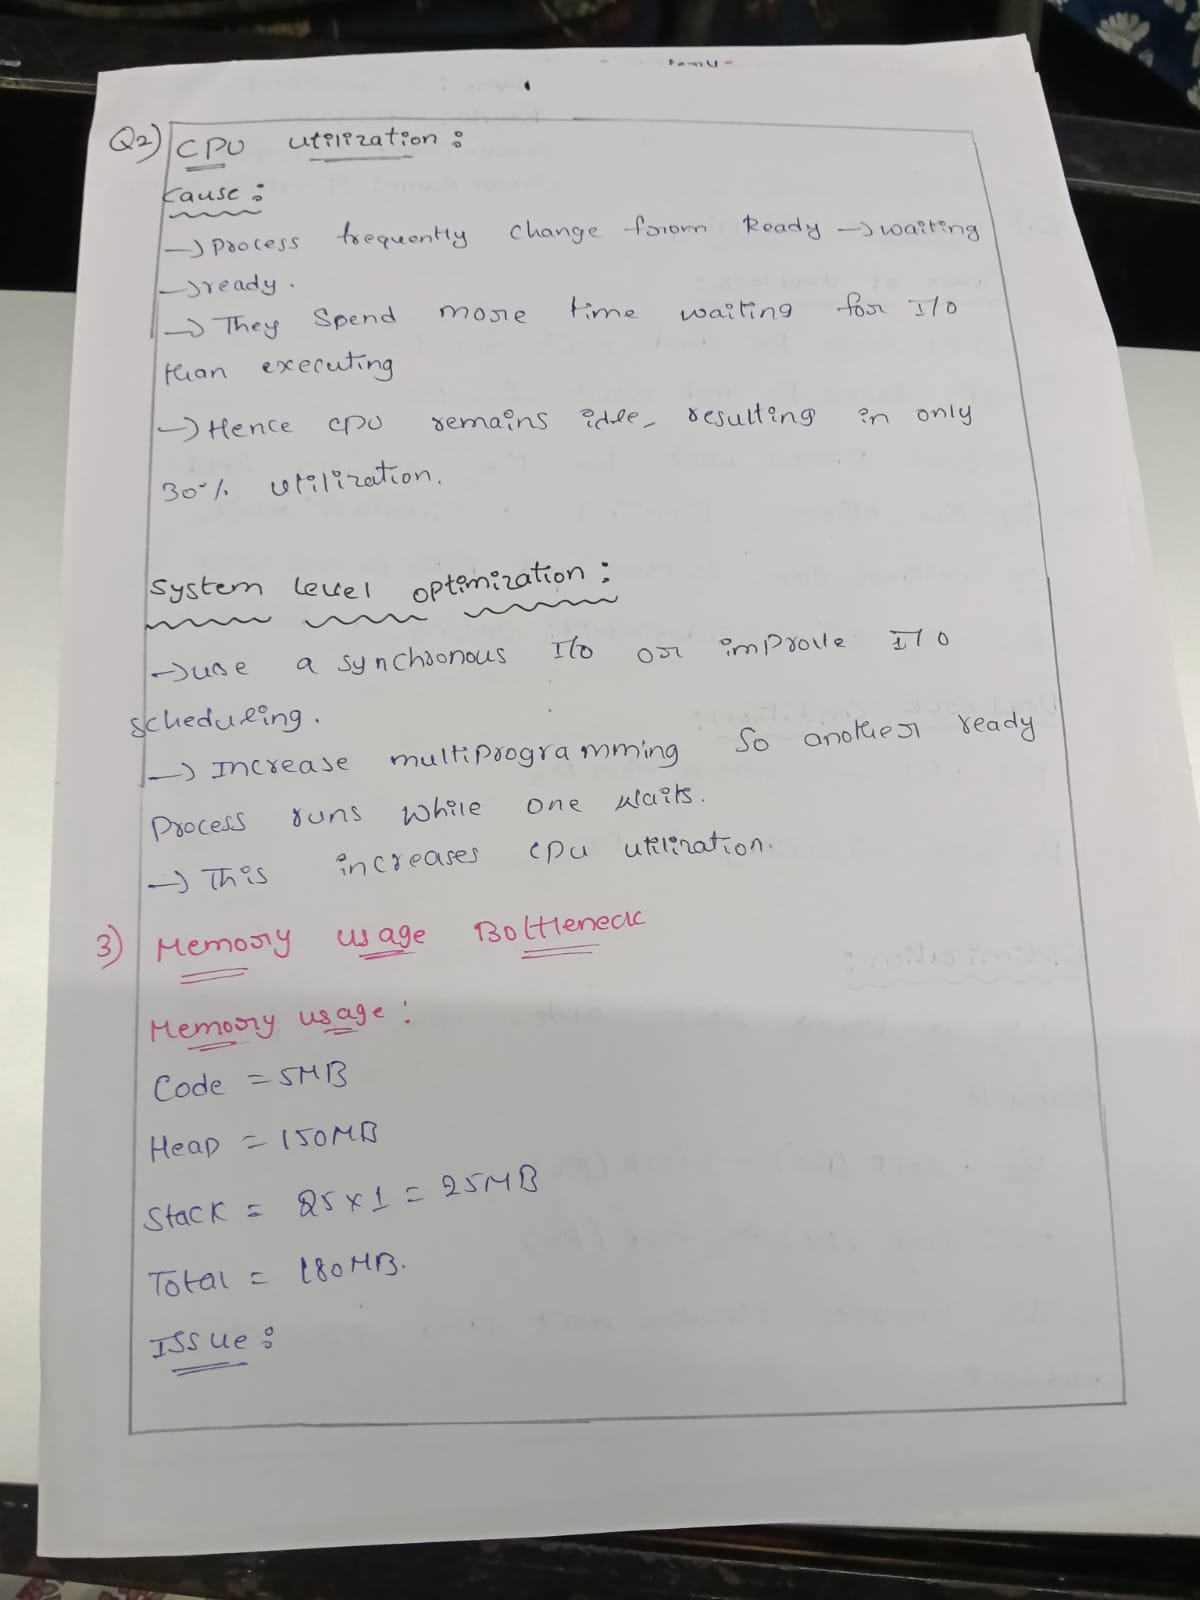 Q2) CPU utilization:
Cause:
→ Process frequently change from Ready → waiting
→ ready.
→ They Spend more time waiting for I/O
than executing
→ Hence CPU remains idle, resulting in only
30% utilization.
System level optimization:
→ use a synchronous I/O or improve I/O
scheduling.
→ Increase multiprogramming So another ready
Process runs while one waits.
→ This increases CPU utilization.
3) Memory usage Bottleneck
Memory usage:
Code = 5MB
Heap = 150MB
Stack = 25 x 1 = 25MB
Total = 180MB.
Issue: